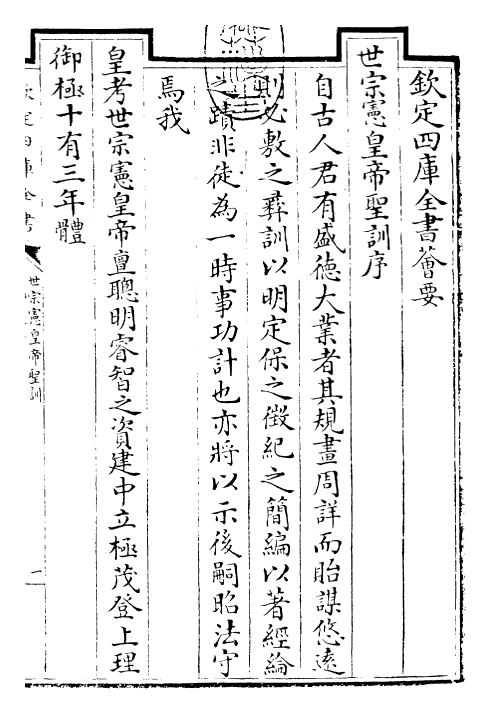 欽定四庫全書薈要
世宗憲皇帝聖訓序
自古人君有盛德大業者其規畫周詳而貽謀悠遠
則必敷之彛訓以明定保之徵紀之簡編以著經綸
之蹟非徒為一時事功計也亦將以示後嗣昭法守
焉我
皇考世宗憲皇帝亶聰明睿智之資建中立極茂登上理
御極十有三年體
欽定四庫全書
世宗憲皇帝聖訓
一